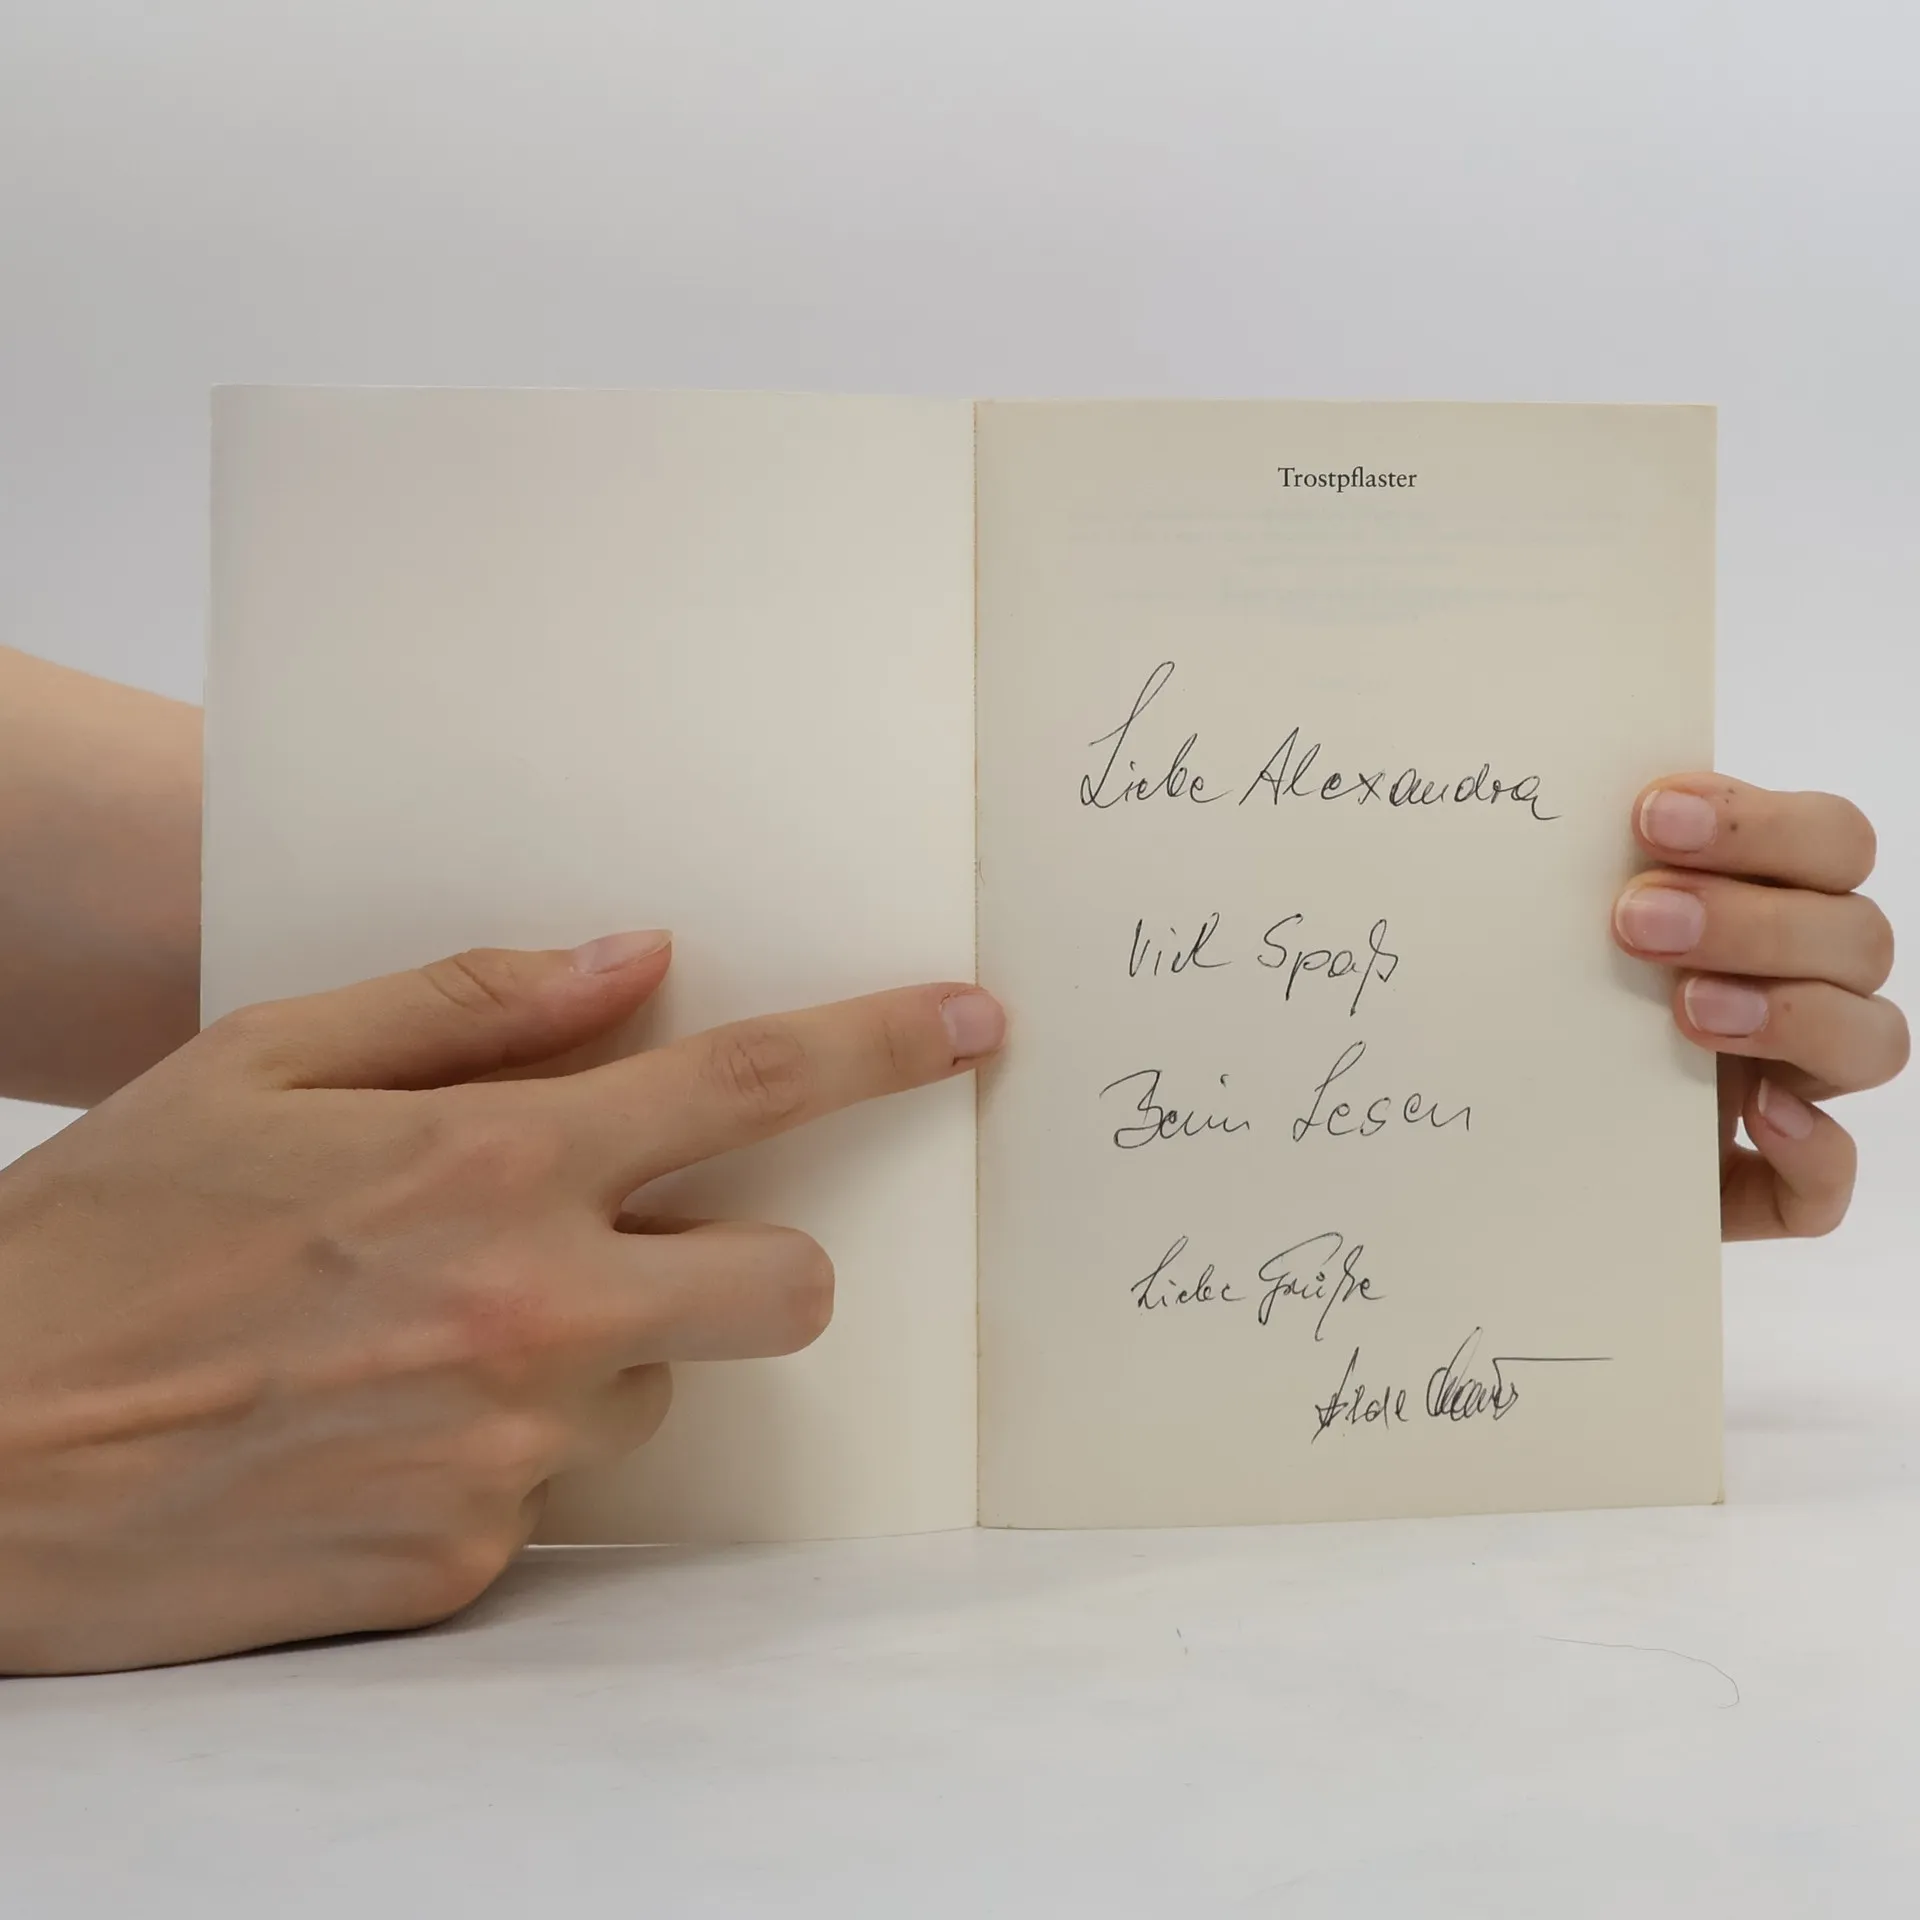 Trostpflaster
Liebe Alexandra
Viel Spaß
Beim Lesen
Liebe Grüße